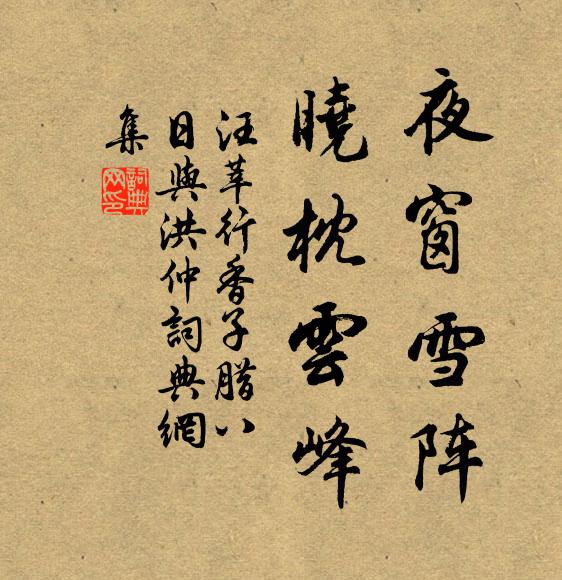 夜窗雪阵
晓枕雲峰
汪莘行香子腊八
日與洪仲詞典網
集
詞典
网印